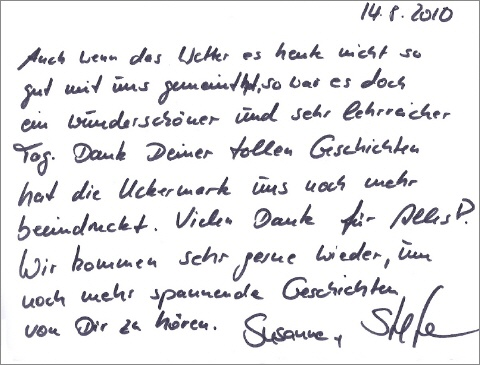 14.8.2010
Auch wenn das Wetter es heute nicht so
gut mit uns gemeint hat, so war es doch
ein wunderschöner und sehr lehrreicher
Tag. Dank Deiner tollen Geschichten
hat die Uckermark uns noch mehr
beeindruckt. Vielen Dank für Alles!
Wir kommen sehr gerne wieder, um
noch mehr spannende Geschichten
von Dir zu hören. Susanne,